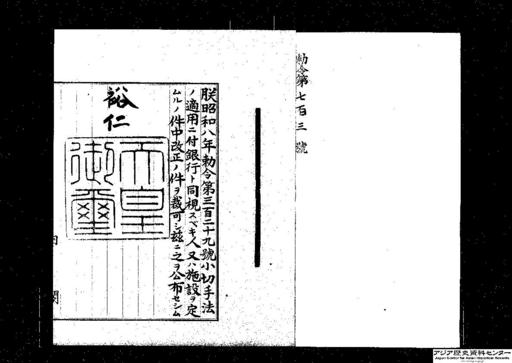 勅令第七百三號
朕昭和八年勅令第三百二十九號小切手法
ノ適用ニ付銀行ト同視スベキ人又ハ施設ヲ定
ムルノ件中改正ノ件ヲ裁可シ茲ニ之ヲ公布セシム
裕仁
天皇御璽
内閣
アジア歴史資料センター
Japan Center for Asian Historical Records